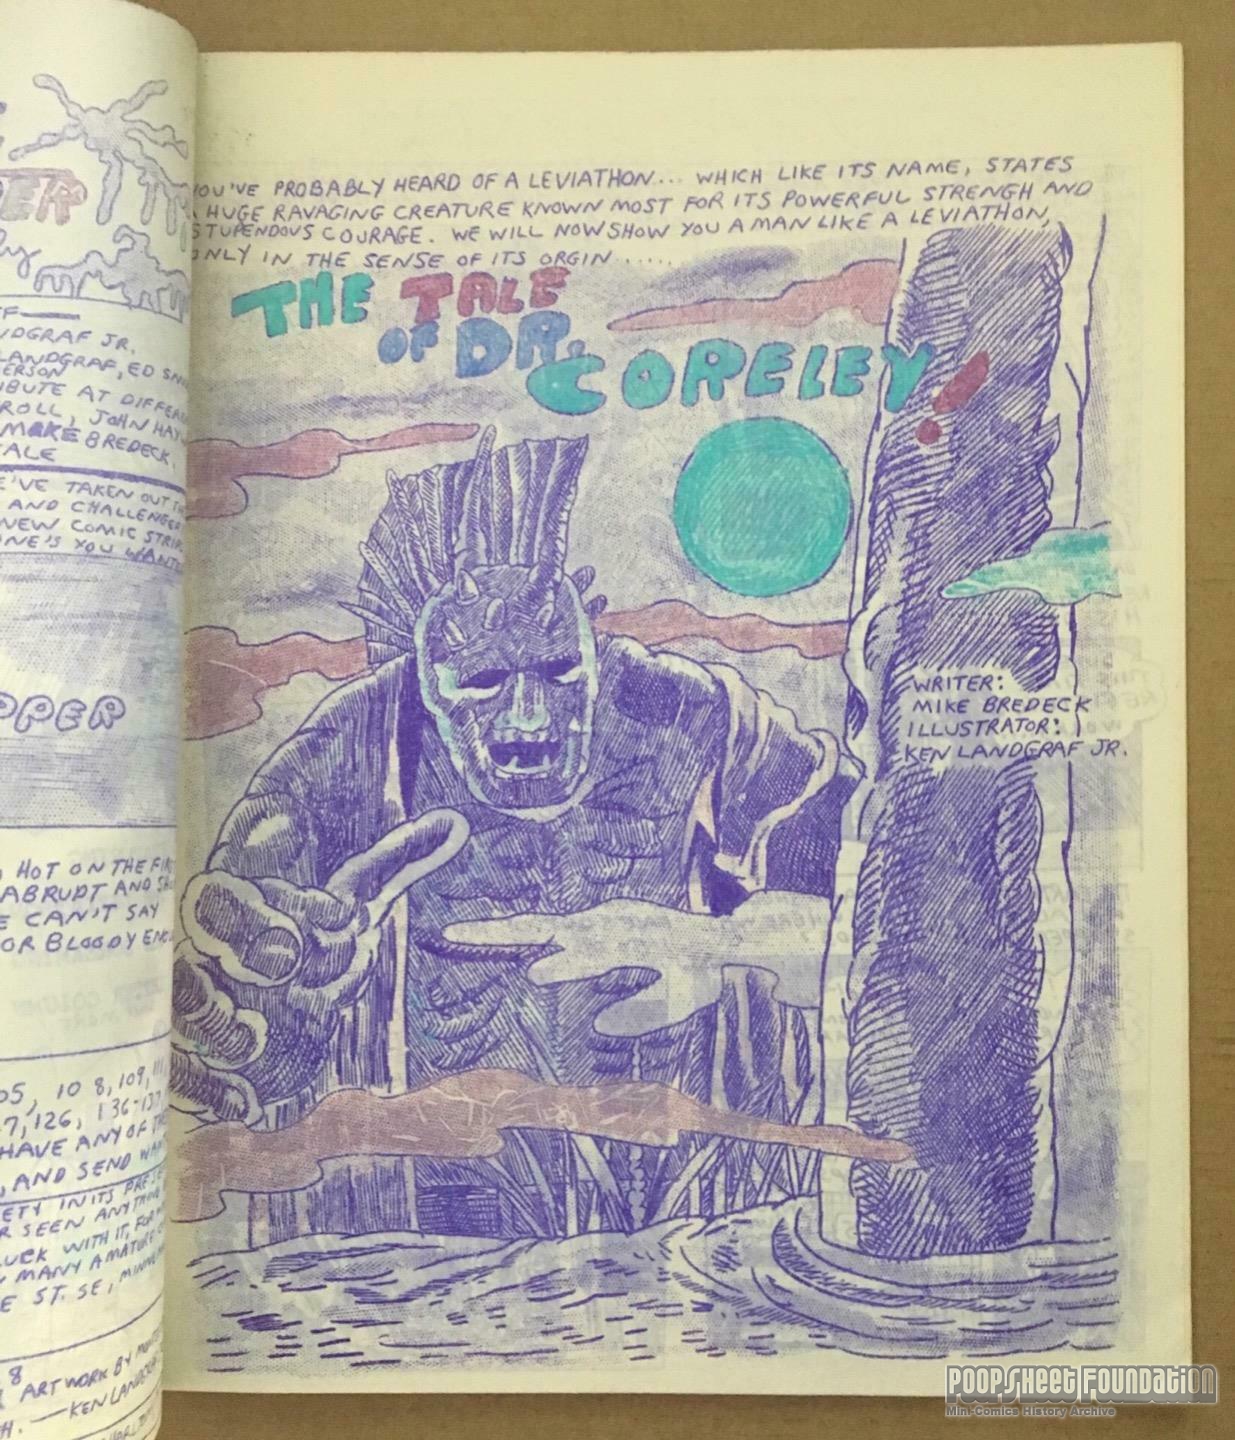 DER
By
NDGRAF JR.
LANDGRAF, ED
ERSON
IBUTE AT
ROLL, JOHN
MAKE BREDECK,
TALE
E'VE TAKEN OUT
AND CHALLENGER
NEW COMIC
ONE'S YOU WANT
PPER
HOT ON THE
ABRUPT AND
E CAN'T SAY
OR BLOODY
05, 108, 109, 111,
7, 126, 136-137
HAVE ANY OF
, AND SEND
ETY IN ITS
R SEEN ANYTHING
LUCK WITH IT, FOR
MANY AMATURE
E ST. SE,
8
ART WORK BY
H. —KEN
YOU'VE PROBABLY HEARD OF A LEVIATHON... WHICH LIKE ITS NAME, STATES
A HUGE RAVAGING CREATURE KNOWN MOST FOR ITS POWERFUL STRENGH AND
STUPENDOUS COURAGE. WE WILL NOW SHOW YOU A MAN LIKE A LEVIATHON,
ONLY IN THE SENSE OF ITS ORGIN......
THE TALE
OF DR.
CORELEY!
WRITER:
MIKE BREDECK
ILLUSTRATOR:
KEN LANDGRAF JR.
POOPSHEET FOUNDATION
Mini-Comics History Archive